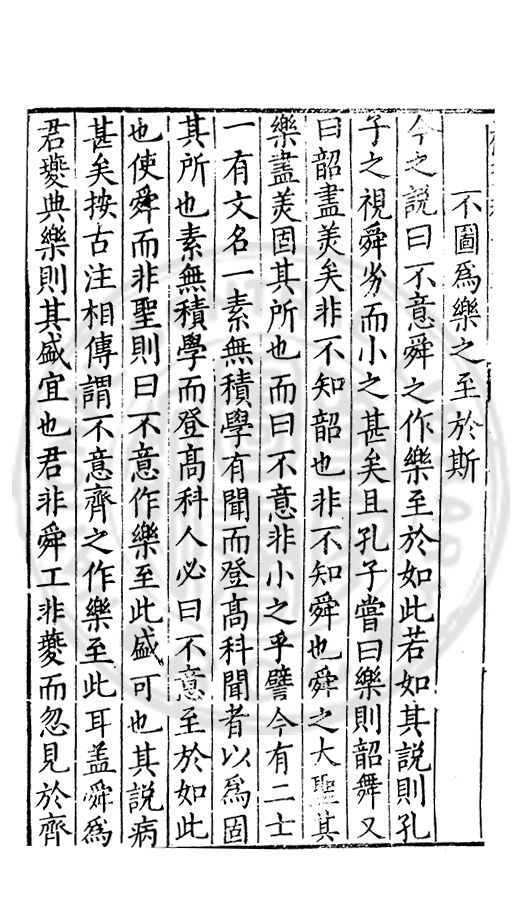 不圖爲樂之至於斯
今之說曰不意舜之作樂至於如此若如其說則孔
子之視舜劣而小之甚矣且孔子嘗曰樂則韶舞又
曰韶盡羙矣非不知韶也非不知舜也舜之大聖其
樂盡羙固其所也而曰不意非小之乎譬今有二士
一有文名一素無積學有聞而登髙科聞者以爲固
其所也素無積學而登髙科人必曰不意至於如此
也使舜而非聖則曰不意作樂至此盛可也其說病
甚矣按古注相傳謂不意齊之作樂至此耳盖舜爲
君夔典樂則其盛宜也君非舜工非夔而忽見於齊